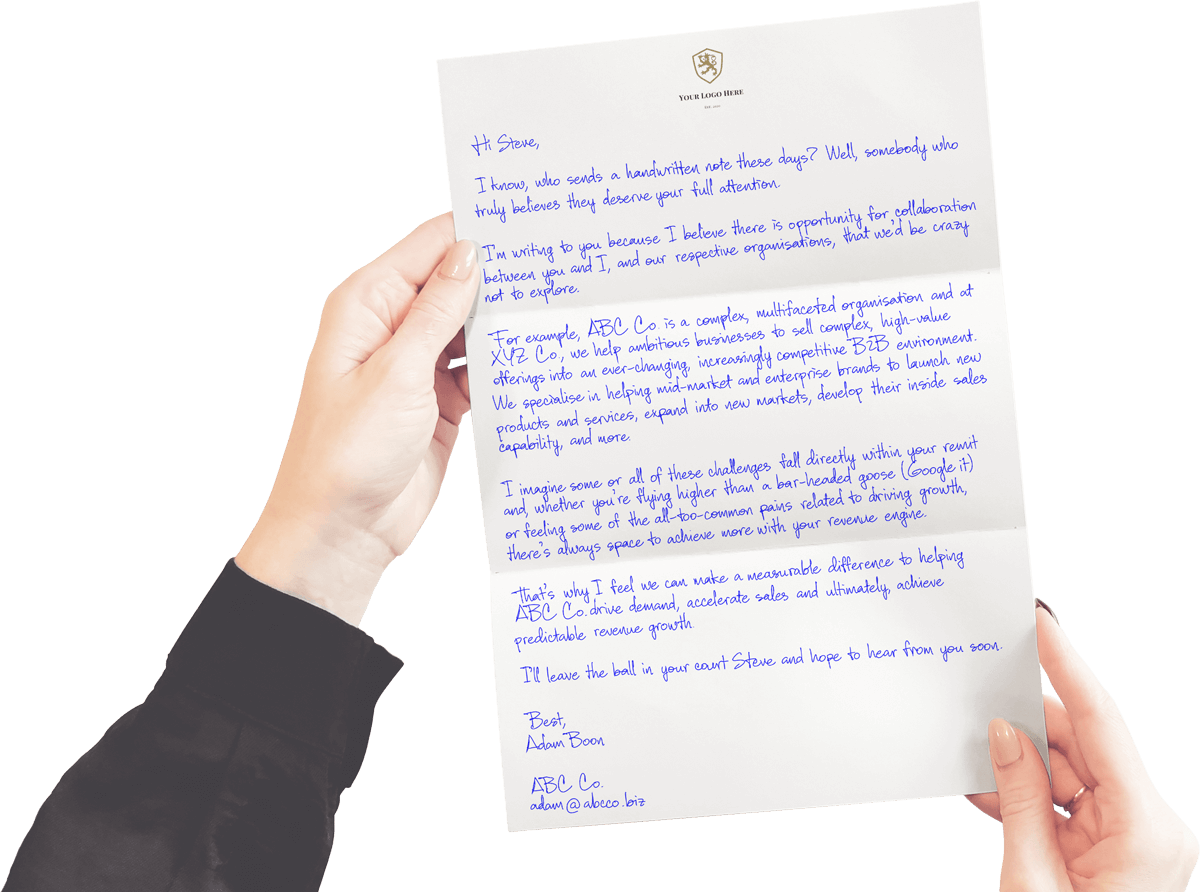 YOUR LOGO HERE
Hi Steve,
I know, who sends a handwritten note these days? Well, somebody who
truly believes they deserve your full attention.
I'm writing to you because I believe there is opportunity for collaboration
between you and I, and our respective organisations, that we'd be crazy
not to explore.
For example, ABC Co. is a complex, multifaceted organisation and at
XYZ Co, we help ambitious businesses to sell complex, high-value
offerings into an ever-changing, increasingly competitive B2B environment.
We specialise in helping mid-market and enterprise brands to launch new
products and services, expand into new markets, develop their inside sales
capability, and more.
I imagine some or all of these challenges fall directly within your remit
and, whether you're flying higher than a bar-headed goose (Google it)
or feeling some of the all-too-common pains related to driving growth,
there's always space to achieve more with your revenue engine.
That's why I feel we can make a measurable difference to helping
ABC Co. drive demand, accelerate sales and ultimately, achieve
predictable revenue growth.
I'll leave the ball in your court Steve and hope to hear from you soon.
Best,
Adam Boon
ABC Co.
adam@abcco.biz